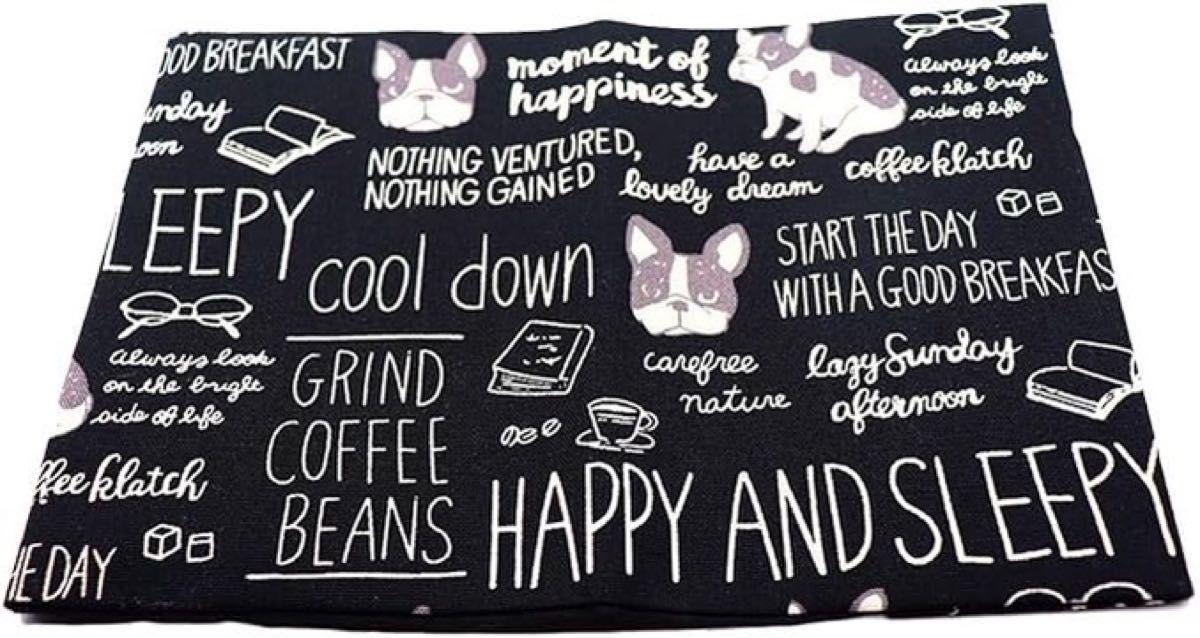 OOD BREAKFAST
moment of
happiness
always look
on the bright
side of life
unday
oon
NOTHING VENTURED,
NOTHING GAINED
have a
lovely dream
coffee klatch
LEEPY
cool down
START THE DAY
WITH A GOOD BREAKFAS
always look
on the bright
side of life
GRIND
COFFEE
BEANS
carefree
nature
lazy Sunday
afternoon
ffee klatch
HAPPY AND SLEEPY
HE DAY